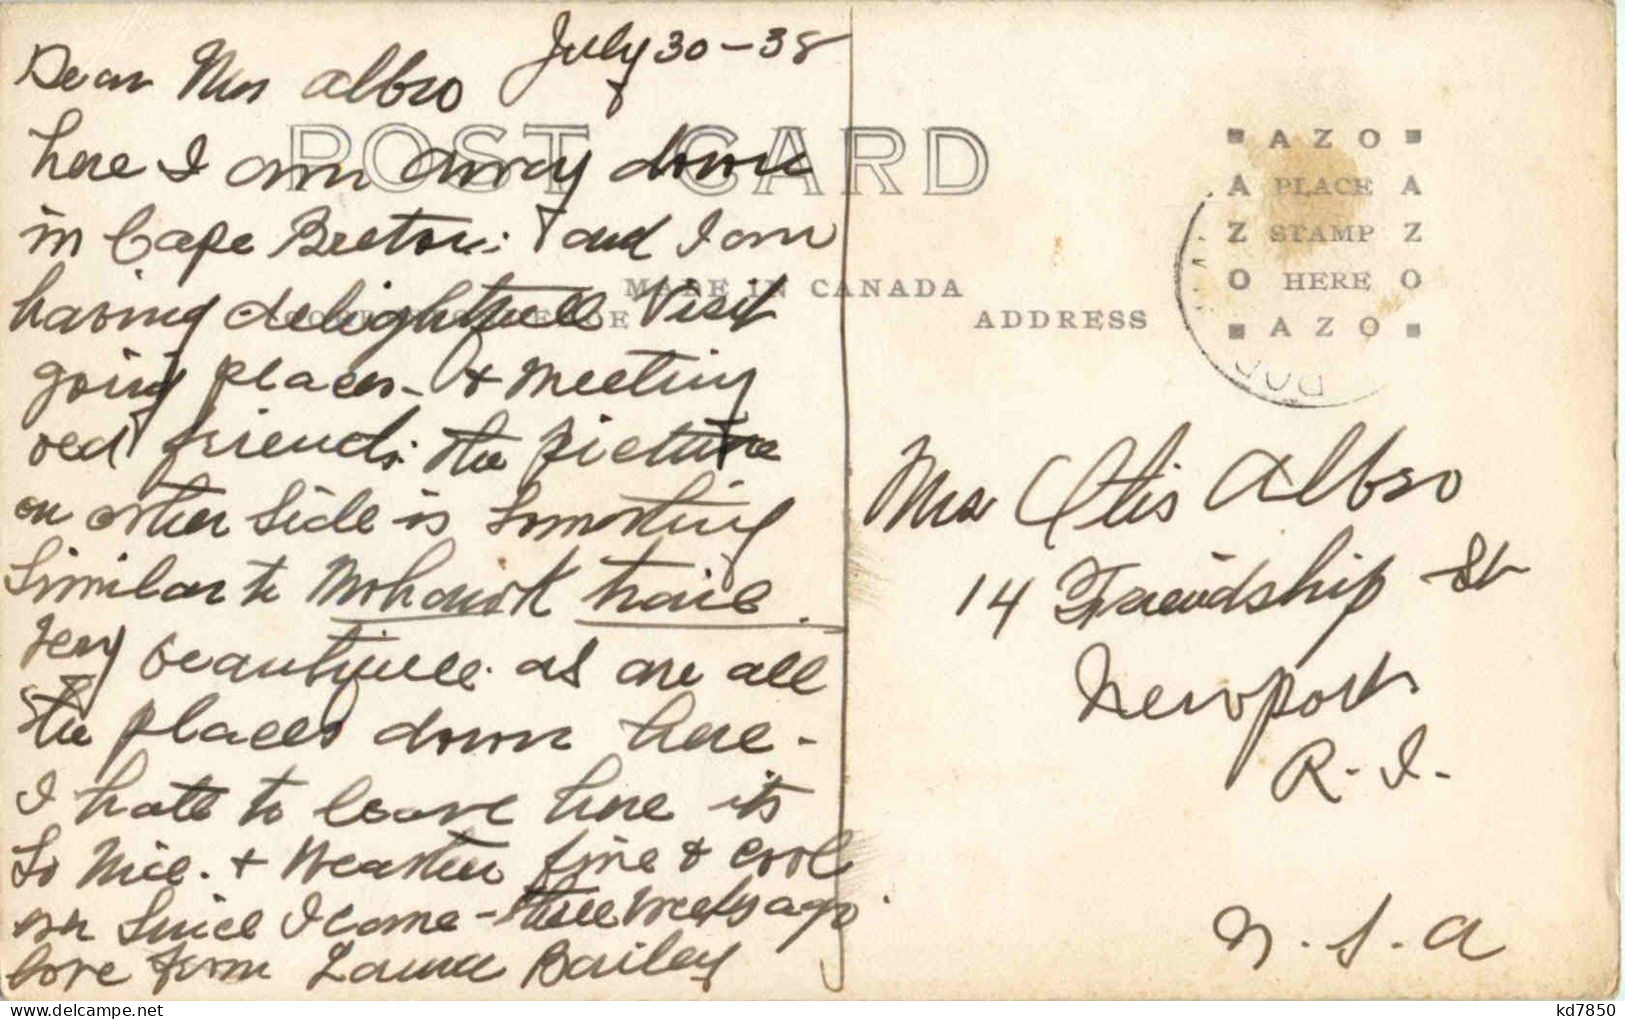 July 30-38
Dear Mrs Albro
here I am away down
in Cape Breton: and I am
having delightfull Visit
going places - & meeting
old friends. the picture
on other side is Something
Similar to Mohawk trail.
Very beautifull. as are all
the places down here -
I hate to leave here its
So Nice. & Weather fine & cool
ever Since I came - three weeks ago.
love from Laura Bailey
POST CARD
MADE IN CANADA
CORRESPONDENCE
ADDRESS
AZO
PLACE
STAMP
HERE
AZO
Mrs Otis Albro
14 Friendship St
Newport
R. I.
U. S. A
kd7850